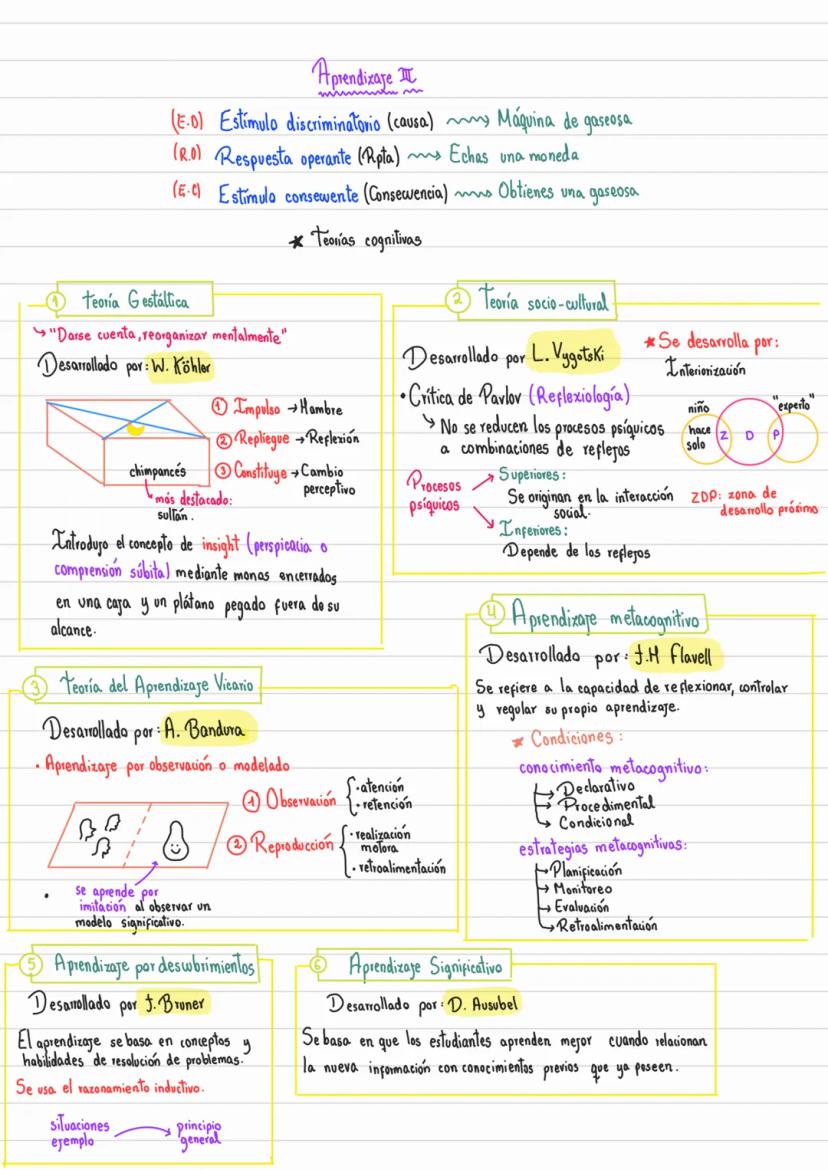 Aprendizaje III
(E.D) Estímulo discriminatorio (causa) Máquina de gaseosa
(R.O) Respuesta operante (Rpta) Echas una moneda
(E.C) Estímulo consewente (Consewencia) Obtienes una gaseosa
* Teorías cognitivas
1 Teoría Gestáltica
"Darse cuenta, reorganizar mentalmente"
Desarrollado por: W. Köhler
1 Impulso → Hambre
2 Repliegue → Reflexión
3 Constituye → Cambio
perceptivo
chimpancés
más destacado:
sultán.
Introdujo el concepto de insight (perspicacia o
comprensión súbita) mediante monos encerrados
en una caja y un plátano pegado fuera de su
alcance.
2 Teoría socio-cultural
Desarrollado por L. Vygotski
* Se desarrolla por:
Interiorización
• Crítica de Pavlov (Reflexiología)
No se reducen los procesos psíquicos
a combinaciones de reflejos
niño
"experto"
hace
solo
Z D P
ZDP: zona de
desarrollo próximo
Procesos
psíquicos
Superiores:
Se originan en la interacción
social.
Inferiores:
Depende de los reflejos
3 Teoría del Aprendizaje Vicario
Desarrollado por: A. Bandura
• Aprendizaje por observación o modelado
1 Observación
• atención
• retención
2 Reproducción
• realización
motora
• retroalimentación
se aprende por
imitación al observar un
modelo significativo.
4 Aprendizaje metacognitivo
Desarrollado por: J.H Flavell
Se refiere a la capacidad de reflexionar, controlar
y regular su propio aprendizaje.
* Condiciones:
conocimiento metacognitivo:
Declarativo
Procedimental
Condicional
estrategias metacognitivas:
Planificación
Monitoreo
Evaluación
Retroalimentación
5 Aprendizaje por deswbrimientos
Desarrollado por J. Bruner
El aprendizaje se basa en conceptos y
habilidades de resolución de problemas.
Se usa el razonamiento inductivo.
situaciones
ejemplo
principio
general
6 Aprendizaje Significativo
Desarrollado por: D. Ausubel
Se basa en que los estudiantes aprenden mejor cuando relacionan
la nueva información con conocimientos previos que ya poseen.